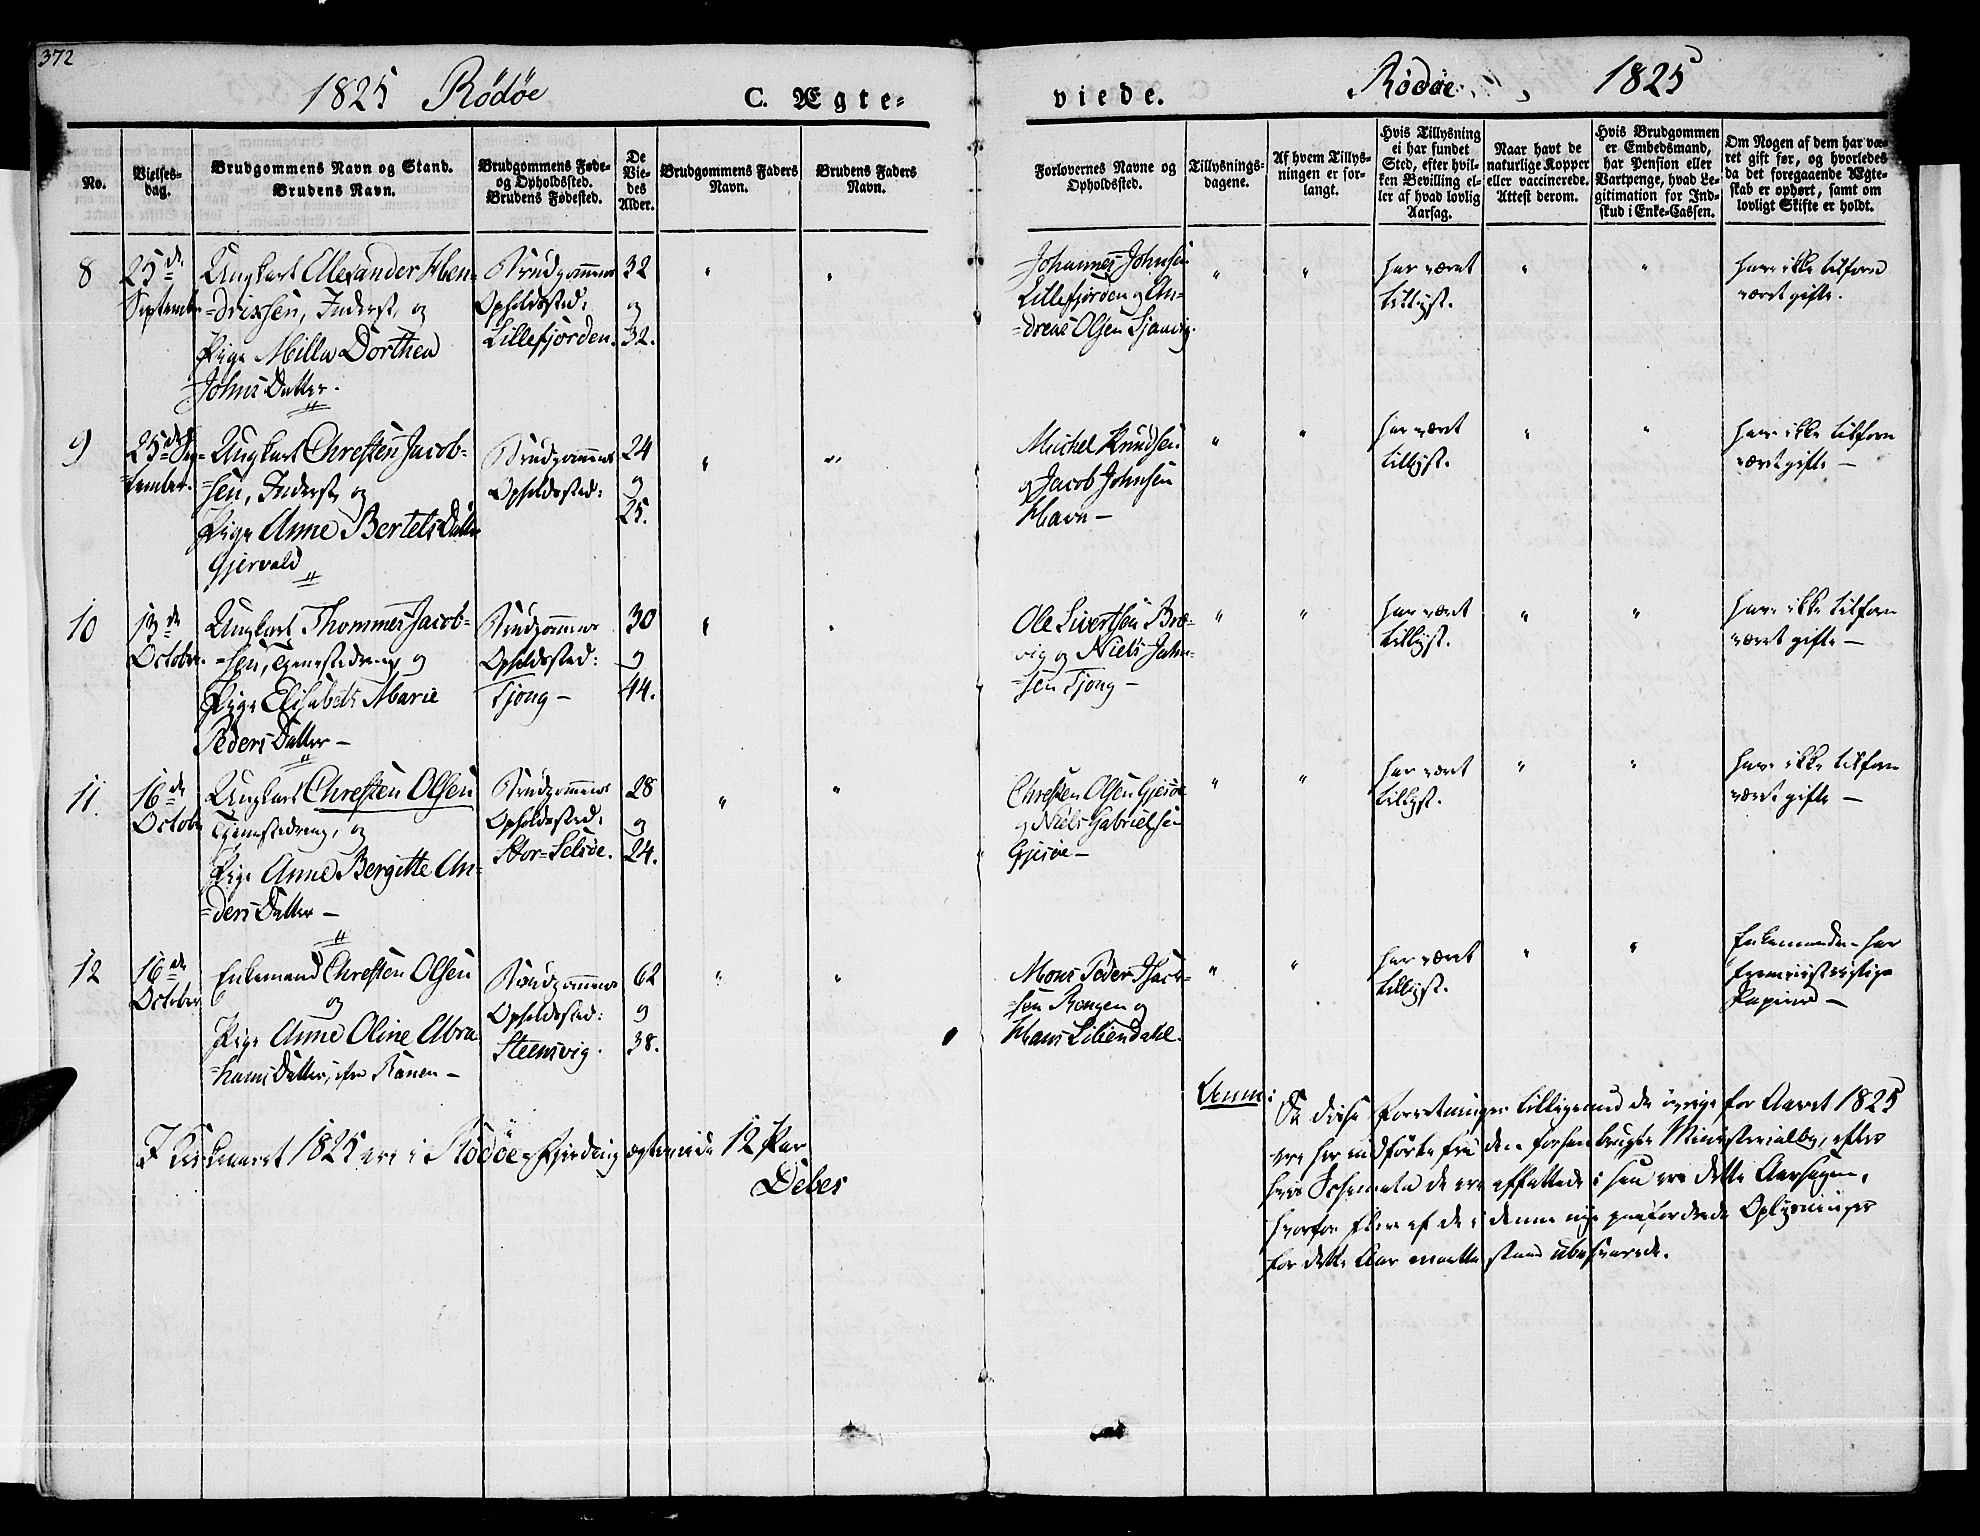 372
1825 Rödöe
C. Ægte=
viede.
Rödöe
1825
No.
Vielses-
dag.
Brudgommens Navn og Stand.
Brudens Navn.
Brudgommens Føde-
og Opholdssted.
Brudens Fødested.
De
Vie-
des
Alder.
Brudgommens Faders
Navn.
Brudens Faders
Navn.
Forlovernes Navne og
Opholdssted.
Tillysnings-
dagene.
Af hvem Tillys-
ningen er for-
langt.
Hvis Tillysning
ei har fundet
Sted, efter hvil-
ken Bevilling el-
ler af hvad lovlig
Aarsag.
Naar havt de
naturlige Kopper
eller vaccinerede.
Attest derom.
Hvis Brudgommen
er Embedsmand,
har Pension eller
Vartpenge, hvad Le-
gitimation for Ind-
skud i Enke-Cassen.
Om Nogen af dem har væ-
ret gift før, og hvorledes
da det foregaaende Ægte-
skab er ophørt, samt om
lovligt Skifte er holdt.
8
25de
September
Ungkarl Allexander Hen-
=drixsen, Inderst, og
Pige Milla Dorthea
Johns Datter.
Brudgommens
Opholdssted:
Lillefjorden.
32
og
32.
Johannes Johnsen
Lillefjorden og An-
=dreas Olsen
har været
tillyst.
have ikke tilforn
været gifte.
9
25de Sep-
=tember.
Ungkarl Chresten Jacob-
=sen, Inderst, og
Pige Anne Bertels Datter
Gjervald
Brudgommens
Opholdssted:
24
og
25.
Michel Knudsen
og Jacob Johnsen
Havn —
har været
tillyst.
have ikke tilforn
været gifte —
10
13de
October.
Ungkarl Thommes Jacob-
=sen, Tjenestedreng, og
Pige Elisabeth Marie
Peders Datter —
Brudgommens
Opholdssted:
Tjong —
30
og
44.
Ole Sivertsen Bre-
vig og Niels John-
=sen Tjong —
har været
tillyst.
have ikke tilforn
været gifte —
11.
16de
October
Ungkarl Chresten Olsen
Tjenestedreng, og
Pige Anne Bergitte An-
=ders Datter —
Brudgommens
Opholdssted:
Stor-Selsöe.
28
og
24.
Chresten Olsen Gjesöe
og Niels Gabrielsen
Gjesöe —
har været
tillyst.
have ikke tilforn
været gifte —
12
16de
October
Enkemand Chresten Olsen
og
Pige Anne Oline Abra-
=hams Datter, fra Ranen —
Brudgommens
Opholdssted:
Steensvig.
62
og
38.
Mons Peder Isach-
=sen Rengen og
Hans Liliendahl.
har været
tillyst.
Enkemanden har
Papirer —
I Kirkeaaret 1825 ere i Rödöe Fjerding ægteviede 12 Par
Debes
Anm: Da disse Forretninger tilligemed de øvrige for Aaret 1825
ere her indførte fra den forhen brugte Ministerialbog, efter
hvis Schemata de ere affattede, saa ere dette Aarsagen,
hvorfor flere af de i denne nye paafordrede Oplysninger
for dette Aar maatte staae ubesvarede.